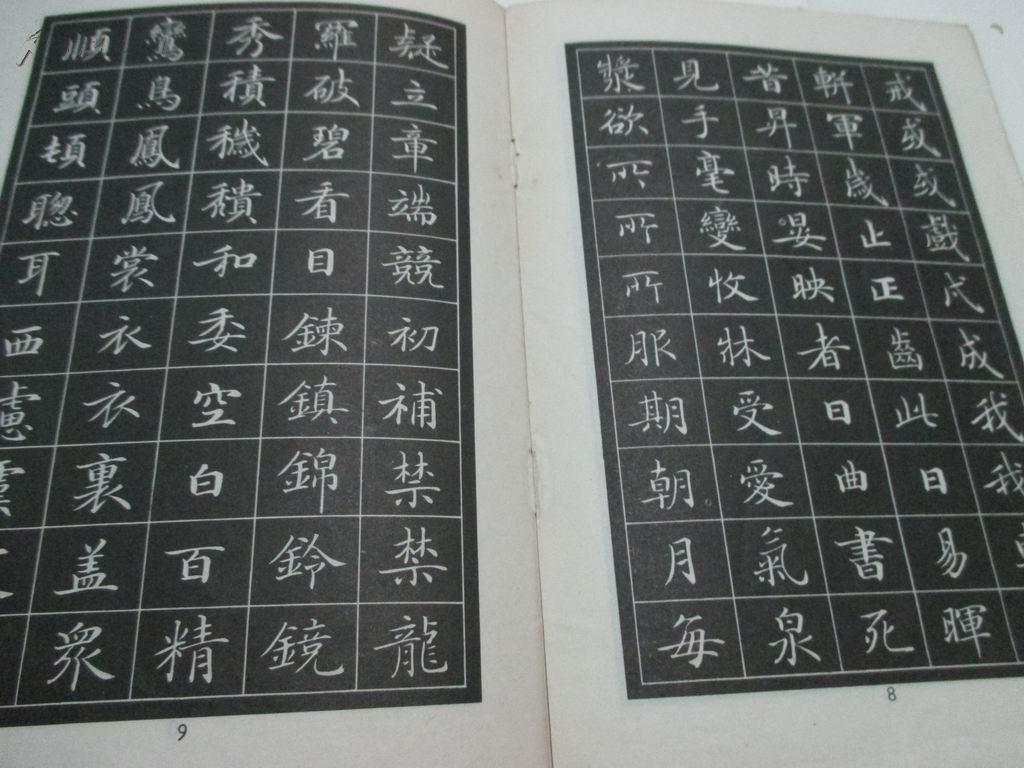 戒或或戲成我我
軒軍歲止正齒此日易暉
昔昇時晏映者日曲書死
見手毫變牧牀受愛氣泉
漿欲所所所服期朝月每
8
疑立章端競初補禁禁龍
羅破碧看目鍊鎮錦鈴鏡
秀積穢穨和委空白百精
鸞鳥鳳鳳裳衣衣裏盖眾
順頭頓聰耳西慮
9